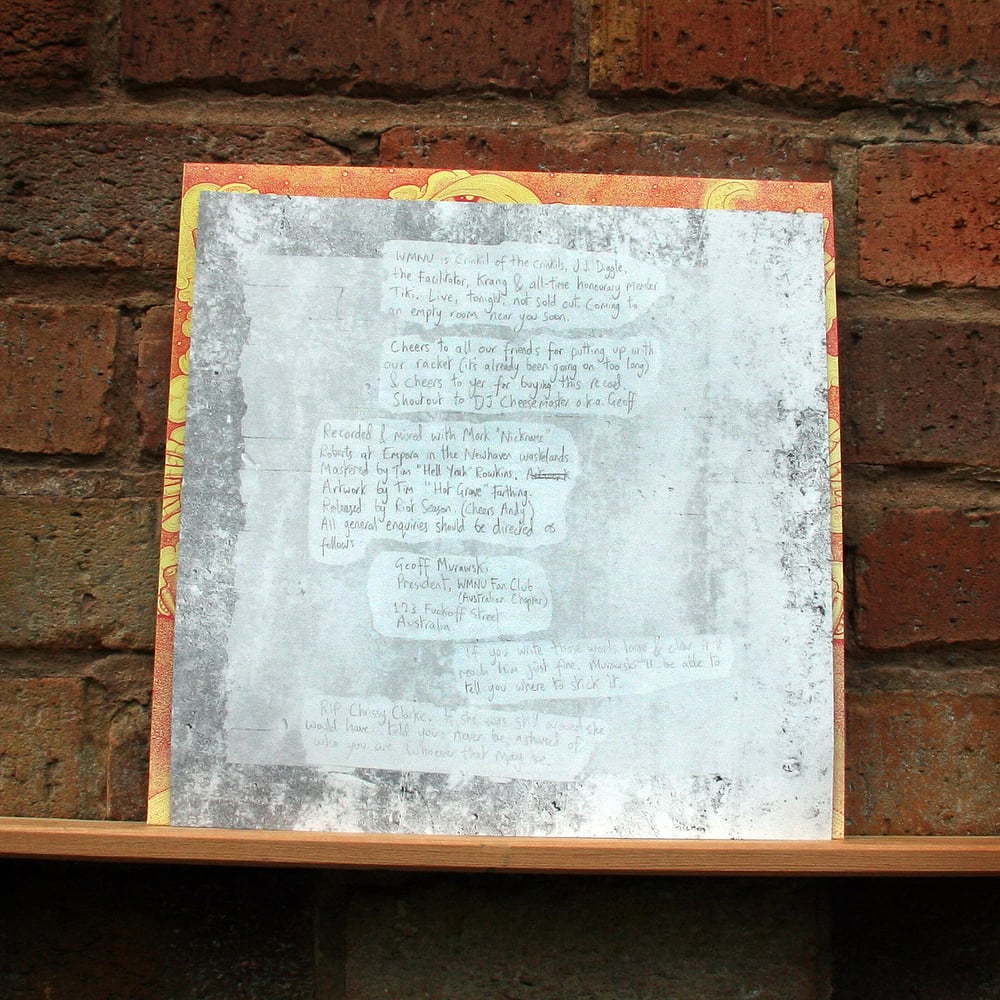 WMNU is Crinkil of the crinkils, J.J. Diggle,
the Facilitator, Krang & all-time honourary member
Tiki. Live, tonight, not sold out. Coming to
an empty room near you soon.
Cheers to all our friends for putting up with
our racket (it's already been going on too long)
& cheers to yer for buying this record.
Shoutout to DJ Cheesemaster a.k.a. Geoff
Recorded & mixed with Mark "Nickname"
Roberts at Empora in the Newhaven wastelands
Mastered by Tim "Hell Yeah" Rowkins.
Artwork by Tim "Hot Grave" Farthing.
Released by Riot Season. (Cheers Andy)
All general enquiries should be directed as
follows
Geoff Murawski
President, WMNU Fan Club
(Australian Chapter)
123 Fuckoff Street
Australia
If you write those words large & clear it'll
reach him just fine. Murawski'll be able to
tell you where to stick it.
RIP Chrissy Clarke. If she was still around she
would have told you: never be ashamed of
who you are. Whoever that may be.